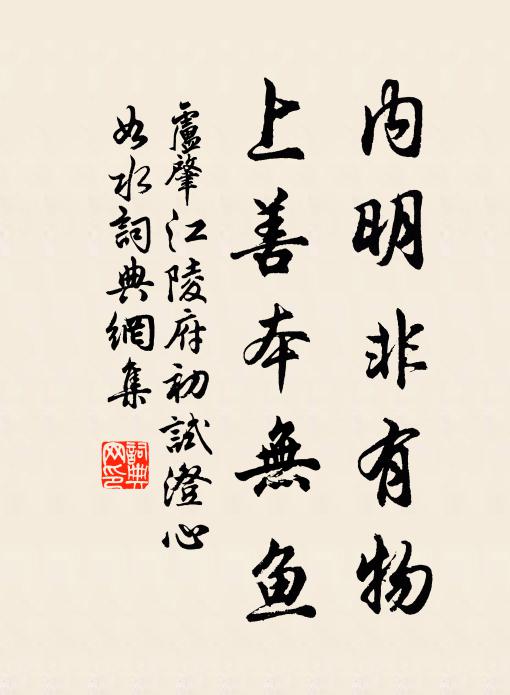 內明非有物
上善本無鱼
盧肇江陵府初試澄心
如水詞典網集
詞典网印